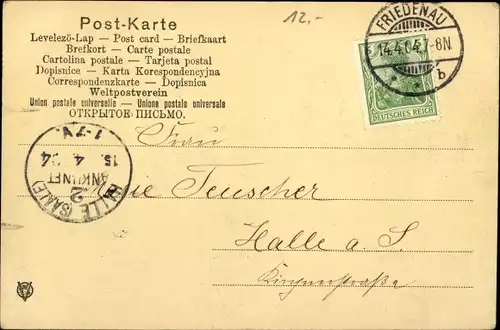 Post-Karte
12.-
Levelezö-Lap — Post card — Briefkaart
Brefkort — Carte postale
Cartolina postale — Tarjeta postal
Dopisnice — Karta Korespondencyjna
Correspondenzkarte — Dopisnica
Weltpostverein
Union postale universelle — Unione postale universale
ОТКРЫТОЕ ПИСЬМО.
FRIEDENAU
14.4.04.7-8N
b
DEUTSCHES REICH
Frau
Teuscher
Halle a. S.
HALLE (SAALE)
2
ANKUNFT
15. 4. 04
1-7V.